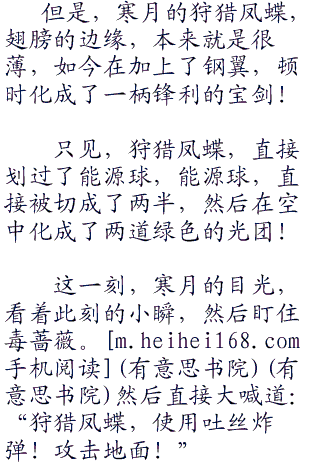 但是，寒月的狩猎凤蝶，
翅膀的边缘，本来就是很
薄，如今在加上了钢翼，顿
时化成了一柄锋利的宝剑！
只见，狩猎凤蝶，直接
划过了能源球，能源球，直
接被切成了两半，然后在空
中化成了两道绿色的光团！
这一刻，寒月的目光，
看着此刻的小瞬，然后盯住
毒蔷薇。[m.heihei168.com
手机阅读](有意思书院)(有
意思书院)然后直接大喊道：
“狩猎凤蝶，使用吐丝炸
弹！攻击地面！”